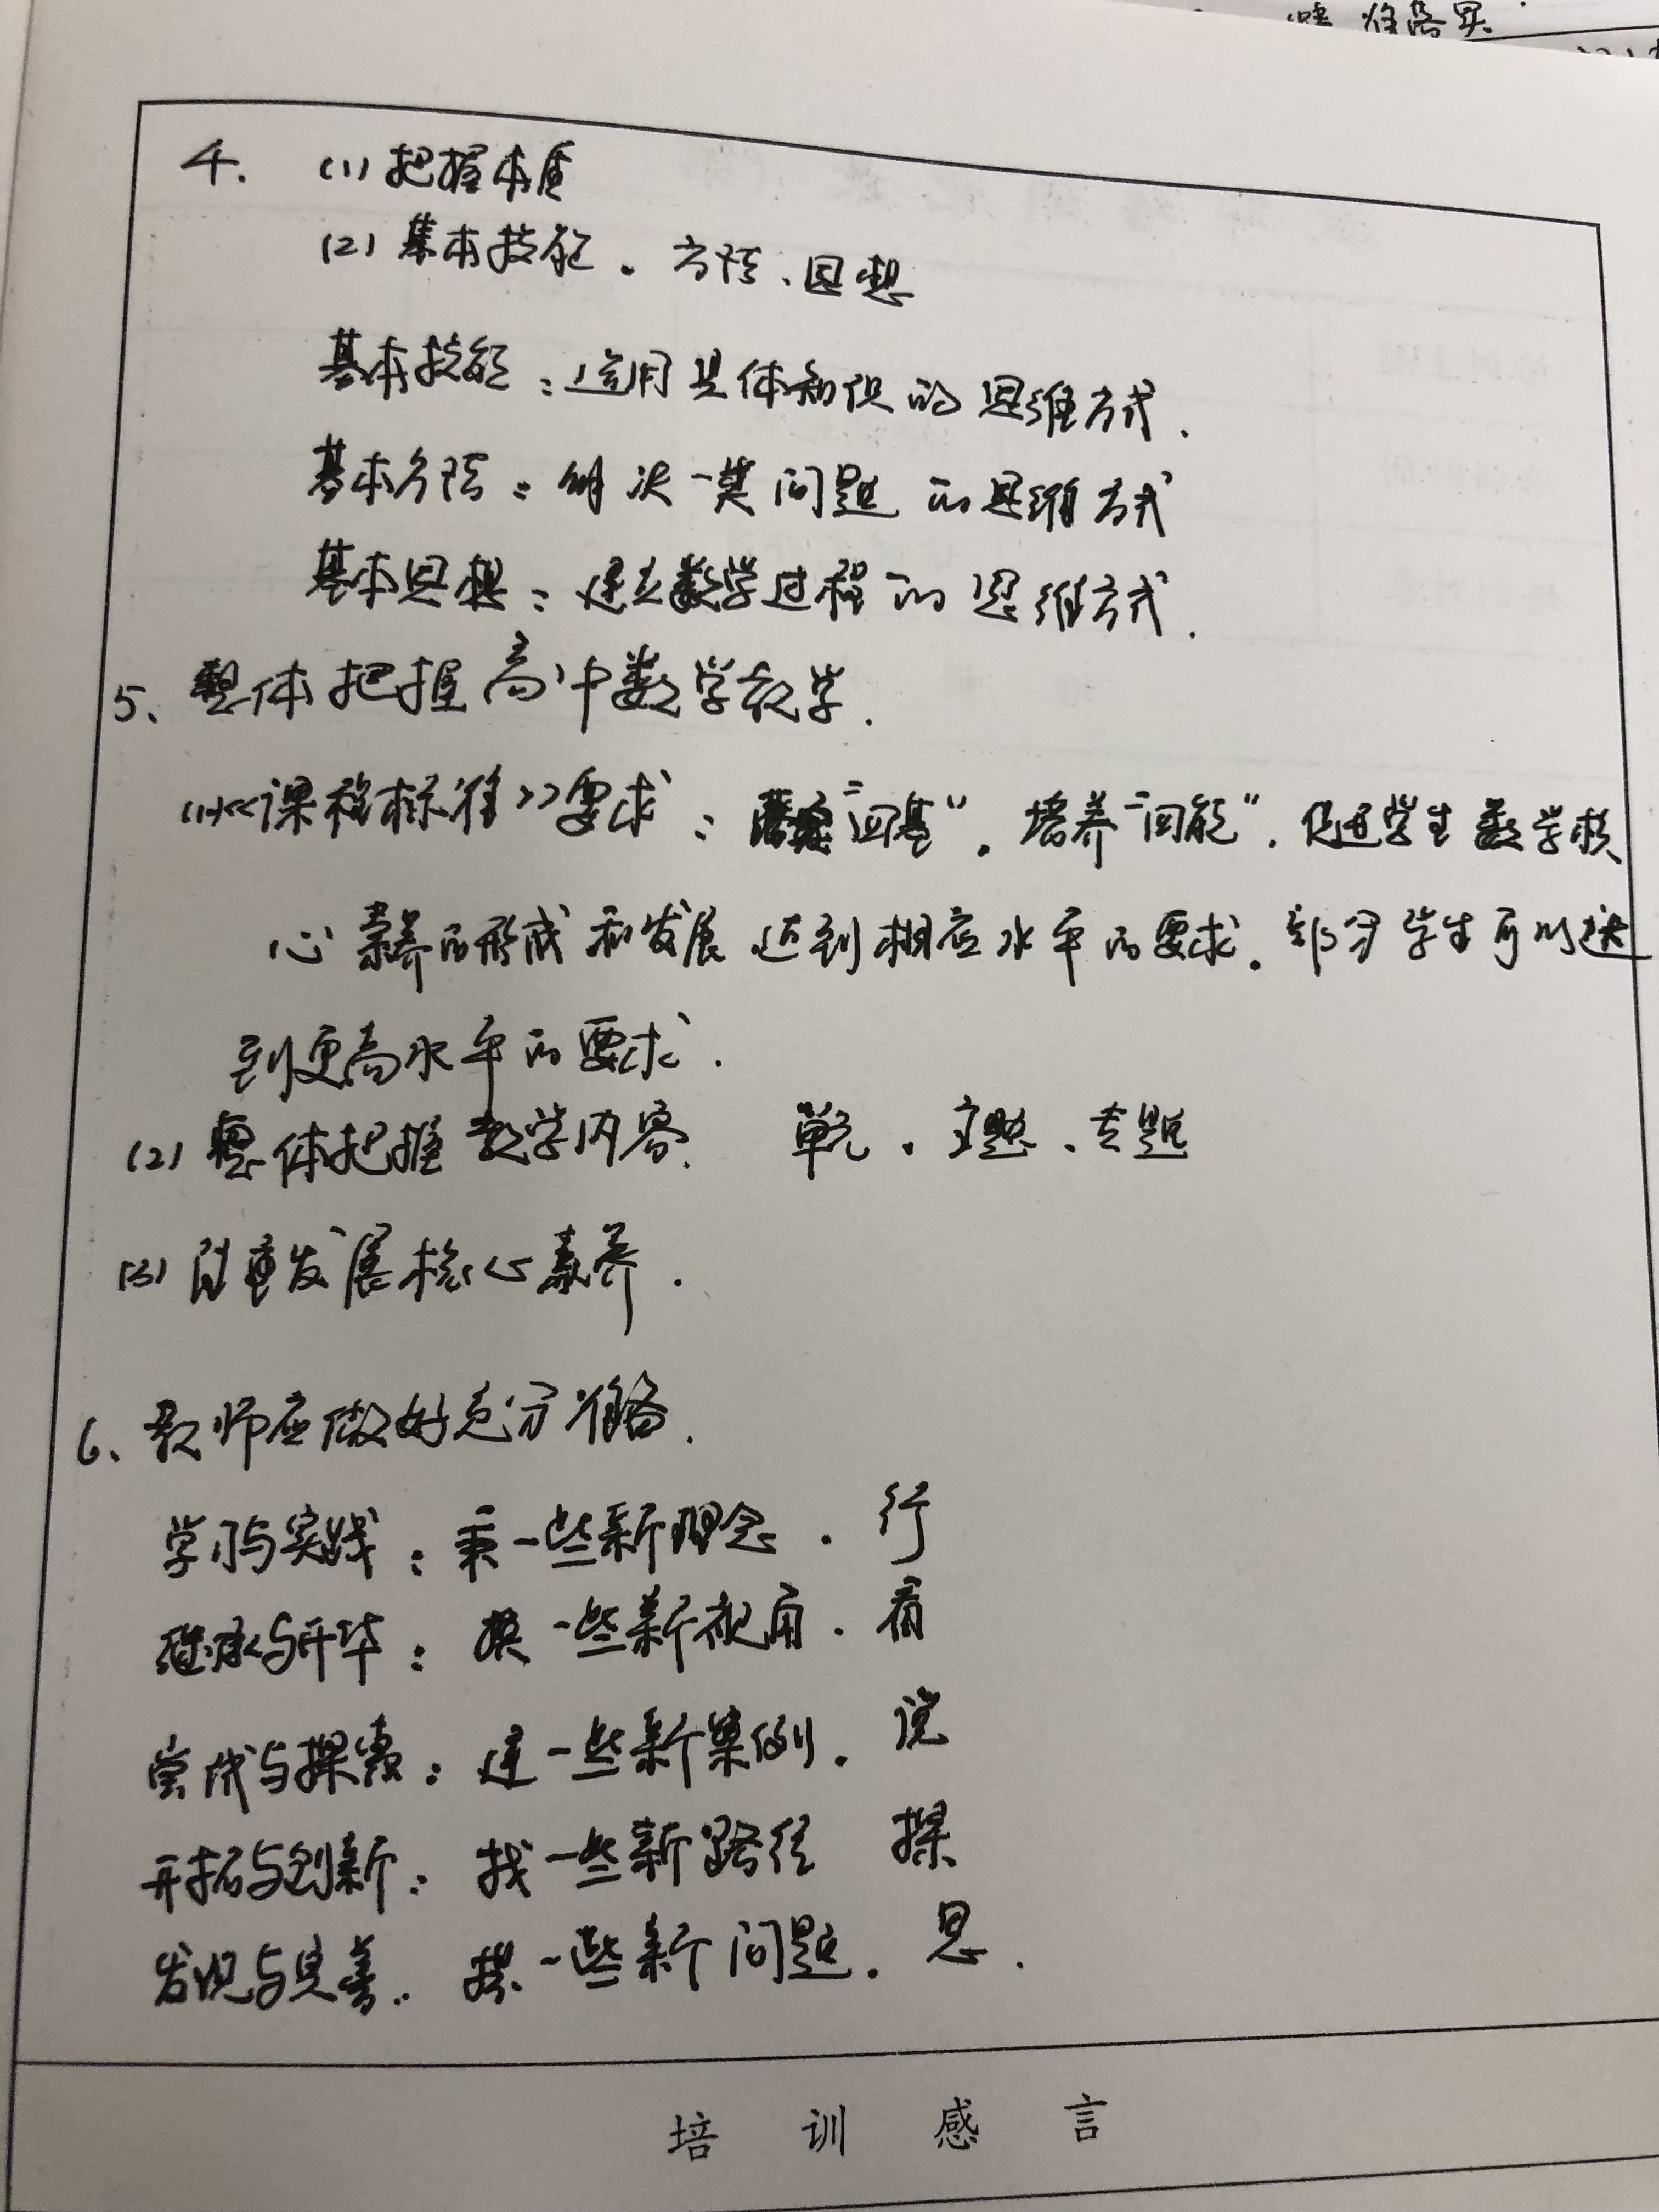 4. (1) 把握本质
(2) 基本技能、方法、思想
基本技能：运用具体知识的思维方式.
基本方法：解决一类问题的思维方式
基本思想：建立数学过程的思维方式.
5、整体把握高中数学教学.
(1)《课程标准》要求：落实“四基”、培养“四能”.促进学生数学核
心素养的形成和发展 达到相应水平的要求.部分学生可以达
到更高水平的要求.
(2) 整体把握教学内容. 单元、主题、专题
(3) 注重发展核心素养.
6、教师应做好充分准备.
学习与实践：秉一些新理念.行
继承与升华：换一些新视角.看
尝试与探索：建一些新案例.说
开拓与创新：找一些新路径 探
发现与完善：提一些新问题.思.
培训感言